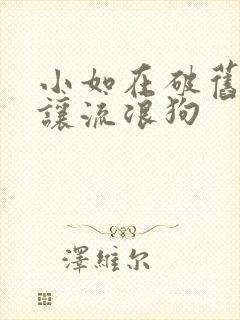 小如在破舊
讓流浪狗
澤維尔